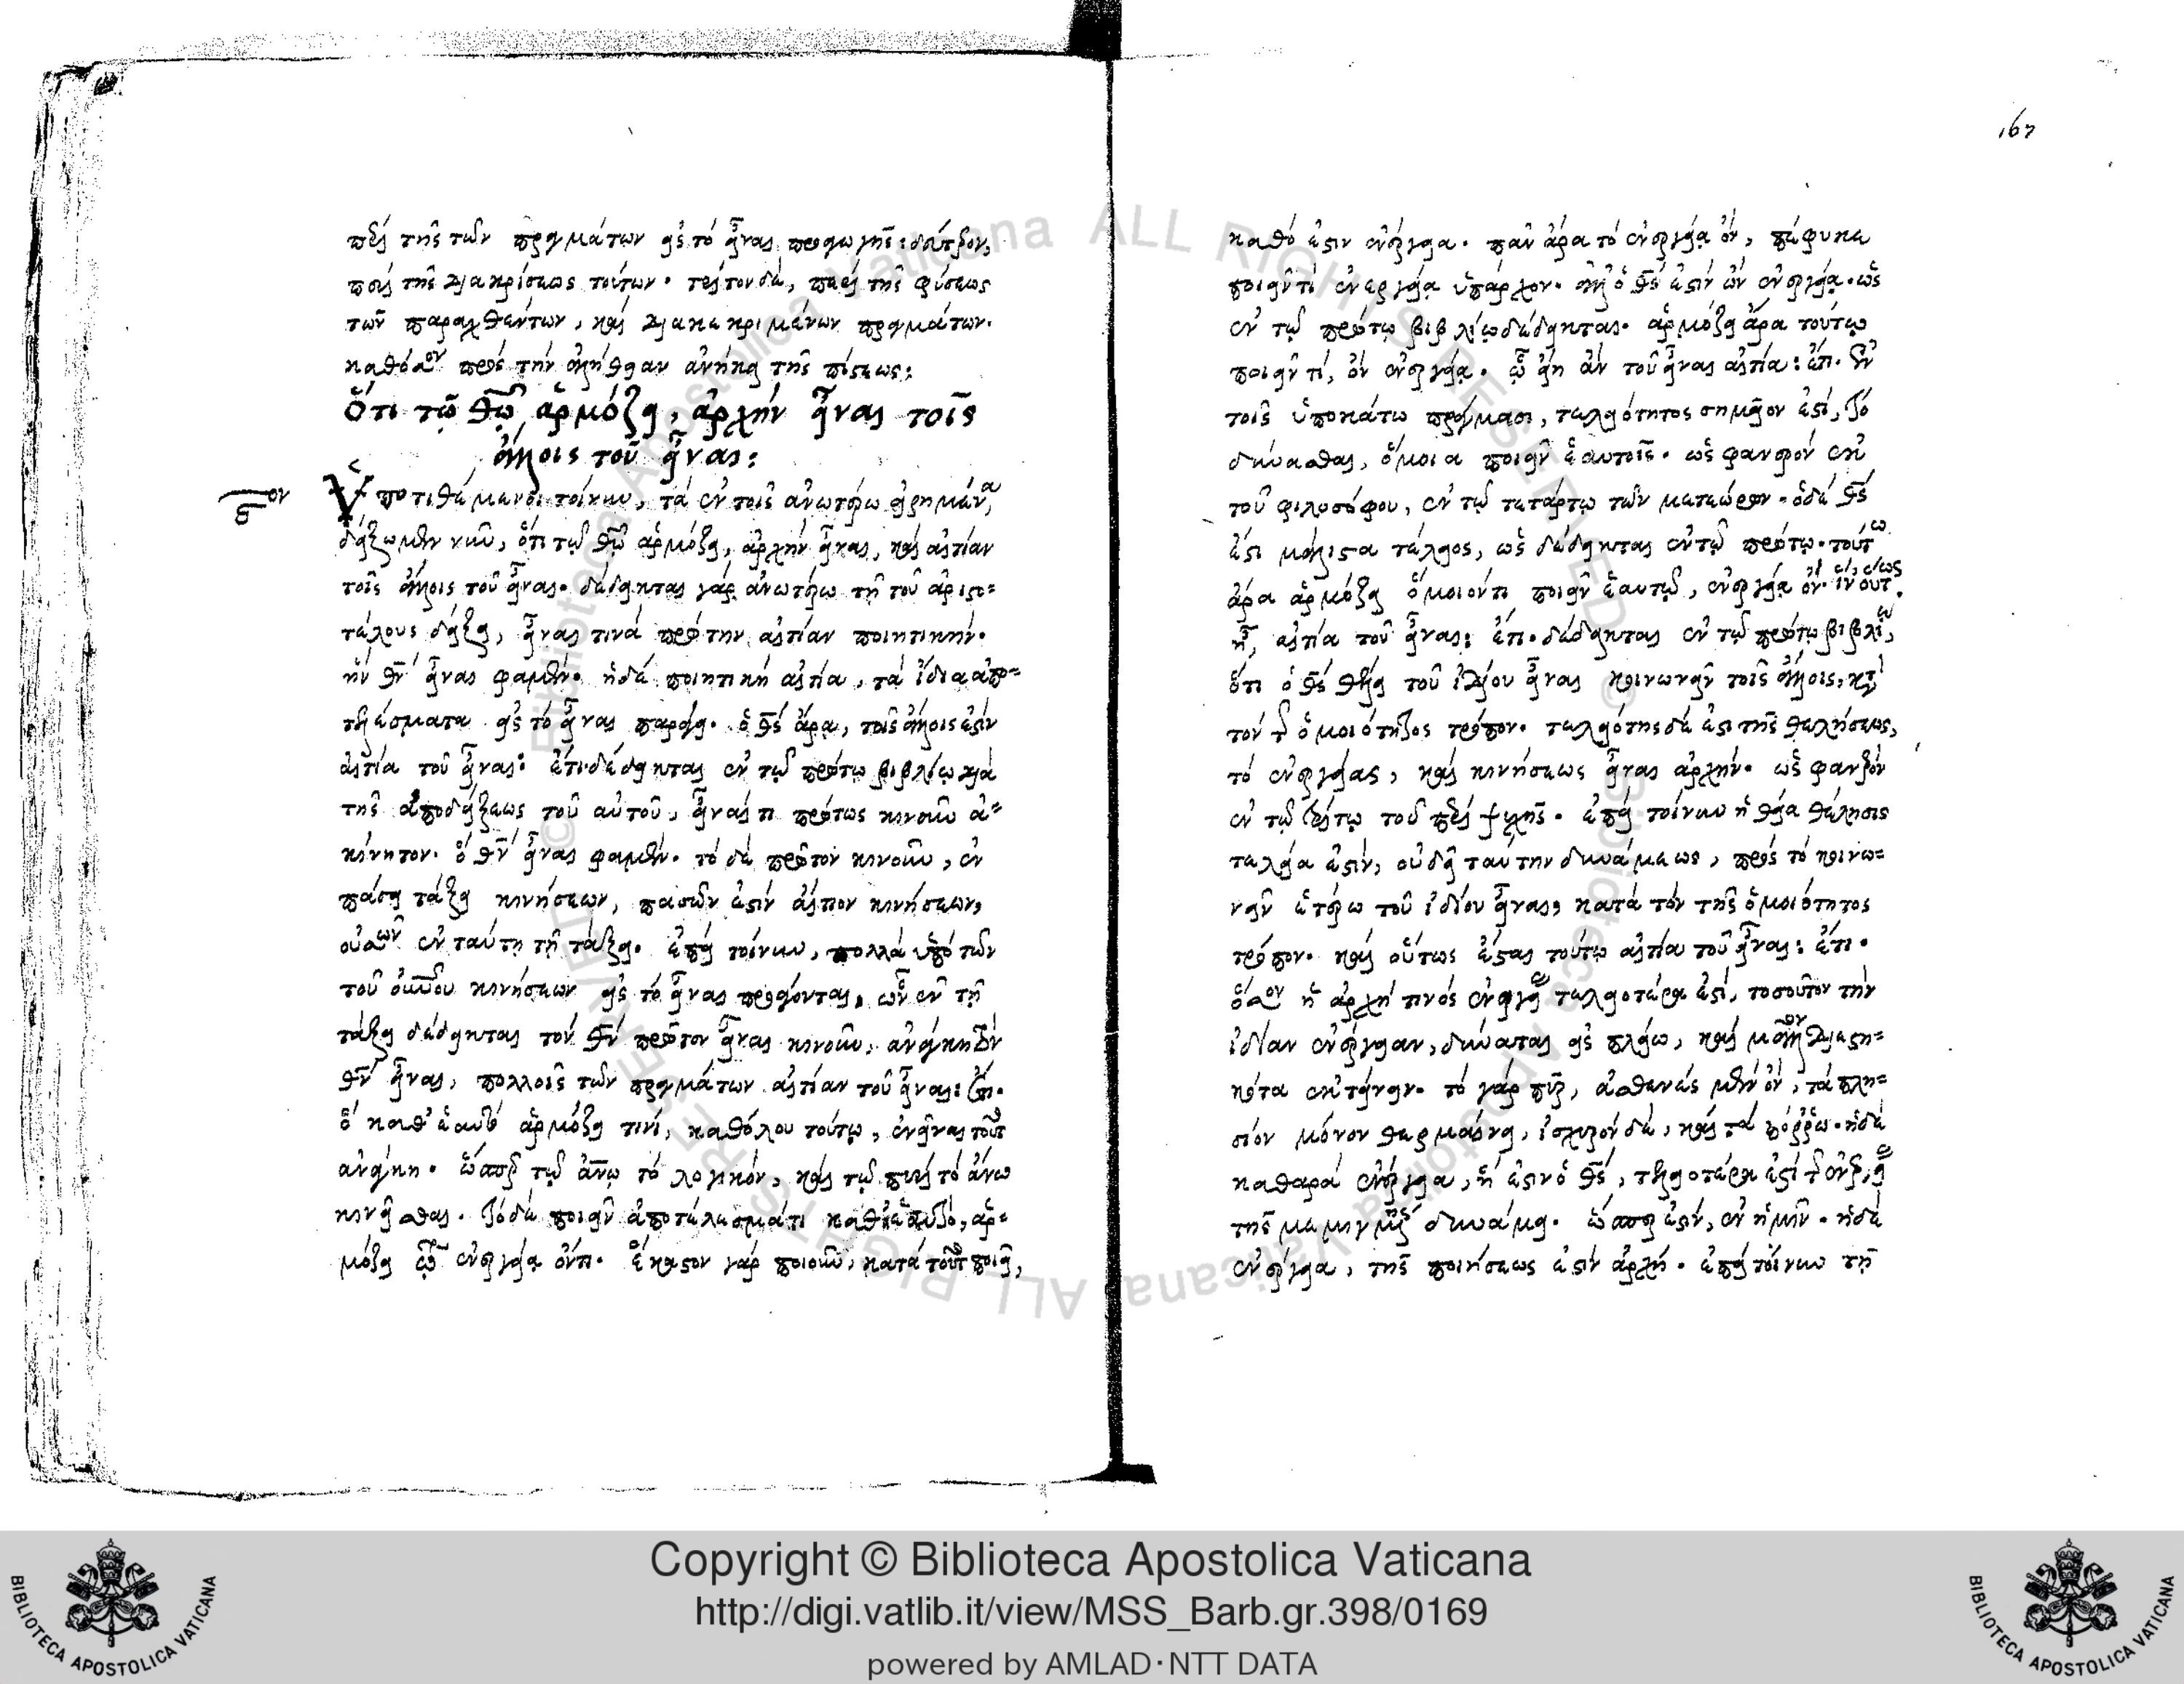 περὶ τῆς τῶν πραγμάτων εἰς τὸ εἶναι προαγωγῆς: δεύτερον,
περὶ τῆς διακρίσεως τούτων. τρίτον δὲ, περὶ τῆς φύσεως
τῶν παραχθέντων, καὶ διακεκριμένων πραγμάτων.
καθόσον πρὸς τὴν ἀλήθειαν ἀνήκει τῆς πίστεως:
Ὅτι τῷ θῶ ἁρμόζει, ἀρχὴν εἶναι τοῖς
ἄλλοις τοῦ εἶναι:
Ὑποτιθέμενοι τοίνυν, τὰ ἐν τοῖς ἀνωτέρω εἰρημένα,
δείξωμεν νῦν, ὅτι τῷ θῶ ἁρμόζει, ἀρχὴν εἶναι, καὶ αἰτίαν
τοῖς ἄλλοις τοῦ εἶναι. δέδεικται γὰρ ἀνωτέρω τῇ τοῦ ἀριστο=
τέλους δείξει, εἶναι τινὰ πρώτην αἰτίαν ποιητικήν.
ἣν θν εἶναι φαμέν. ἡ δὲ ποιητικὴ αἰτία, τὰ ἴδια ἀπο=
τελέσματα εἰς τὸ εἶναι παράγει. ὁ θς ἄρα, τοῖς ἄλλοις ἐστὶν
αἰτία τοῦ εἶναι: ἔτι. δέδεικται ἐν τῷ πρώτῳ βιβλίῳ διὰ
τῆς ἀποδείξεως τοῦ αὐτοῦ, εἶναί τι πρώτως κινοῦν ἀ=
κίνητον. ὃ θν εἶναι φαμέν. τὸ δὲ πρῶτον κινοῦν, ἐν
πάσῃ τάξει κινήσεων, πασῶν ἐστὶν αἴτιον κινήσεων,
οὐσῶν ἐν ταύτῃ τῇ τάξει. ἐπεὶ τοίνυν, πολλὰ ὑπὸ τῶν
τοῦ οὐνοῦ κινήσεων εἰς τὸ εἶναι προάγονται, ὧν ἐν τῇ
τάξει δέδεικται τὸν θν πρῶτον εἶναι κινοῦν, ἀνάγκη τὸν
θν εἶναι, πολλοῖς τῶν πραγμάτων αἰτίαν τοῦ εἶναι: ἔτι.
ὃ καθ' ἑαυτὸ ἁρμόζει τινὶ, καθόλου τούτῳ, ἐνεῖναι τοῦτο
ἀνάγκη. ὥσπερ τῷ ἀνῳ τὸ λογικόν, καὶ τῷ πυρὶ τὸ ἄνω
κινεῖσθαι. τὸ δὲ ποιεῖν ἀποτέλεσμά τι καθ' ἑαυτὸ, ἁρ=
μόζει τῷ ἐνεργείᾳ ὄντι. ἕκαστον γὰρ ποιοῦν, κατὰ τοῦτο ποιεῖ,
167
καθό ἐστιν ἐνέργεια. πᾶν ἄρα τὸ ἐνεργείᾳ ὂν, πέφυκε
ποιεῖν τὶ ἐνεργείᾳ ὑπάρχον. ἀλλ' ὁ θς ἐστὶν ὢν ἐνεργείᾳ. ὡς
ἐν τῷ πρώτῳ βιβλίῳ δέδεικται. ἁρμόζει ἄρα τούτῳ
ποιεῖν τὶ, ὂν ἐνεργείᾳ. ᾧ εἴη ἂν τοῦ εἶναι αἰτία: ἔτι. ἐν
τοῖς ὑποκάτω πράγμασι, τελειότητος σημεῖον ἐστὶ, τὸ
δύνασθαι, ὅμοια ποιεῖν ἑαυτοῖς. ὡς φανερὸν ἐκ
τοῦ φιλοσόφου, ἐν τῷ τετάρτῳ τῶν μετεώρων. ὁ δὲ θς
ἐστὶ μάλιστα τέλειος, ὡς δέδεικται ἐν τῷ πρώτῳ. τούτῳ
ἄρα ἁρμόζει ὅμοιόν τι ποιεῖν ἑαυτῷ, ἐνεργείᾳ ὂν. ἵν' οὕτως
εἴη, αἰτία τοῦ εἶναι: ἔτι. δέδεικται ἐν τῷ πρώτῳ βιβλίῳ,
ὅτι ὁ θς θέλει τοῦ ἰδίου εἶναι κοινωνεῖν τοῖς ἄλλοις, κατὰ
τὸν τῆς ὁμοιότητος τρόπον. τελειότης δὲ ἐστὶ τῆς θελήσεως,
τὸ ἐνεργείας, καὶ κινήσεως εἶναι ἀρχήν. ὡς φανερὸν
ἐν τῷ τρίτῳ τοῦ περὶ ψυχῆς. ἐπεὶ τοίνυν ἡ θεία θέλησις
τελεία ἐστὶν, οὐ δεῖ ταύτην δυνάμεως, πρὸς τὸ κοινω=
νεῖν ἑτέρῳ τοῦ ἰδίου εἶναι, κατὰ τὸν τῆς ὁμοιότητος
τρόπον. καὶ οὕτως ἔσται τούτῳ αἰτία τοῦ εἶναι: ἔτι.
ὅσον ἡ ἀρχή τινος ἐνεργείας τελειοτέρα ἐστὶ, τοσοῦτον τὴν
ἰδίαν ἐνέργειαν, δύναται εἰς πλείω, καὶ μᾶλλον διεστη=
κότα ἐκτείνειν. τὸ γὰρ πῦρ, ἀσθενὲς μὲν ὂν, τὰ πλη=
σίον μόνον θερμαίνει, ἰσχυρὸν δὲ, καὶ τὰ πόῤῥω. ἡ δὲ
καθαρὰ ἐνέργεια, ἥ ἐστιν ὁ θς, τελειοτέρα ἐστὶ τῆς ἐνεργείας
τῆς μεμιγμένης δυνάμει. ὥσπερ ἐστὶν, ἐν ἡμῖν. ἡ δὲ
ἐνέργεια, τῆς ποιήσεως ἐστὶν ἀρχή. ἐπεὶ τοίνυν τῇ
Copyright © Biblioteca Apostolica Vaticana
http://digi.vatlib.it/view/MSS_Barb.gr.398/0169
powered by AMLAD·NTT DATA